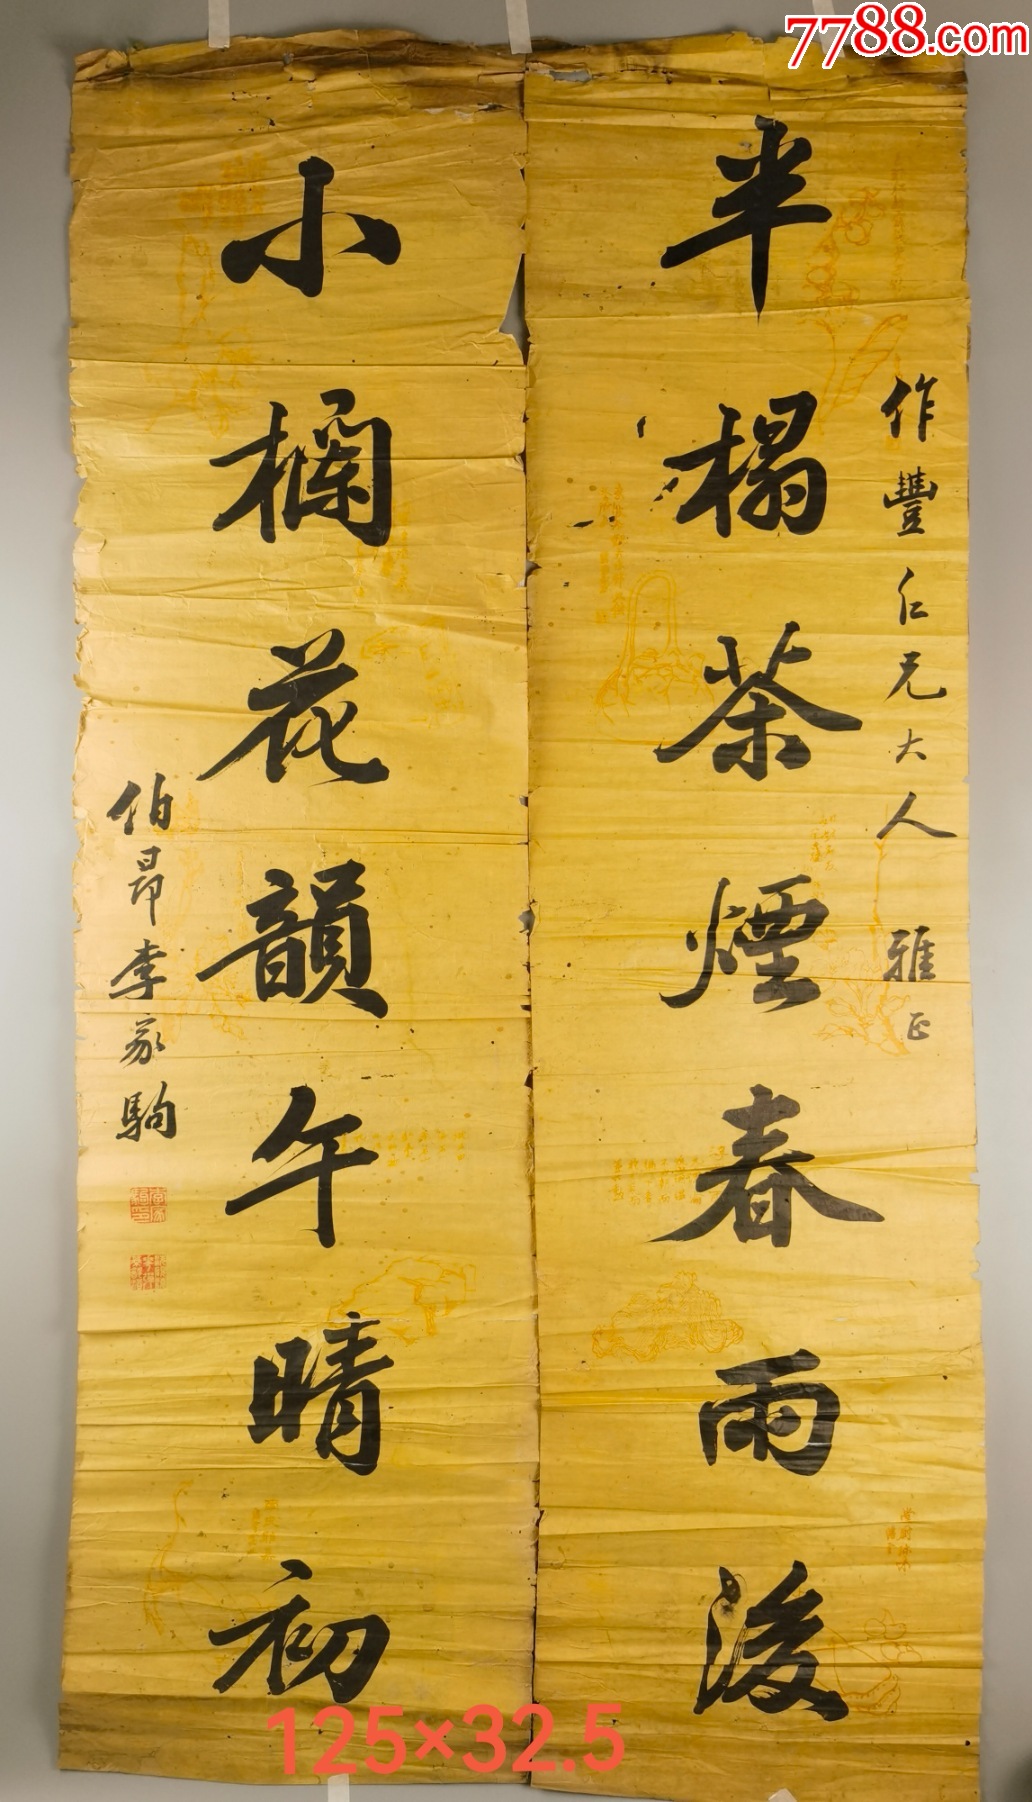 7788.com
作豐仁兄大人雅正
半榻茶煙春雨後
小欄花韻午晴初
伯昂李家駒
125×32.5